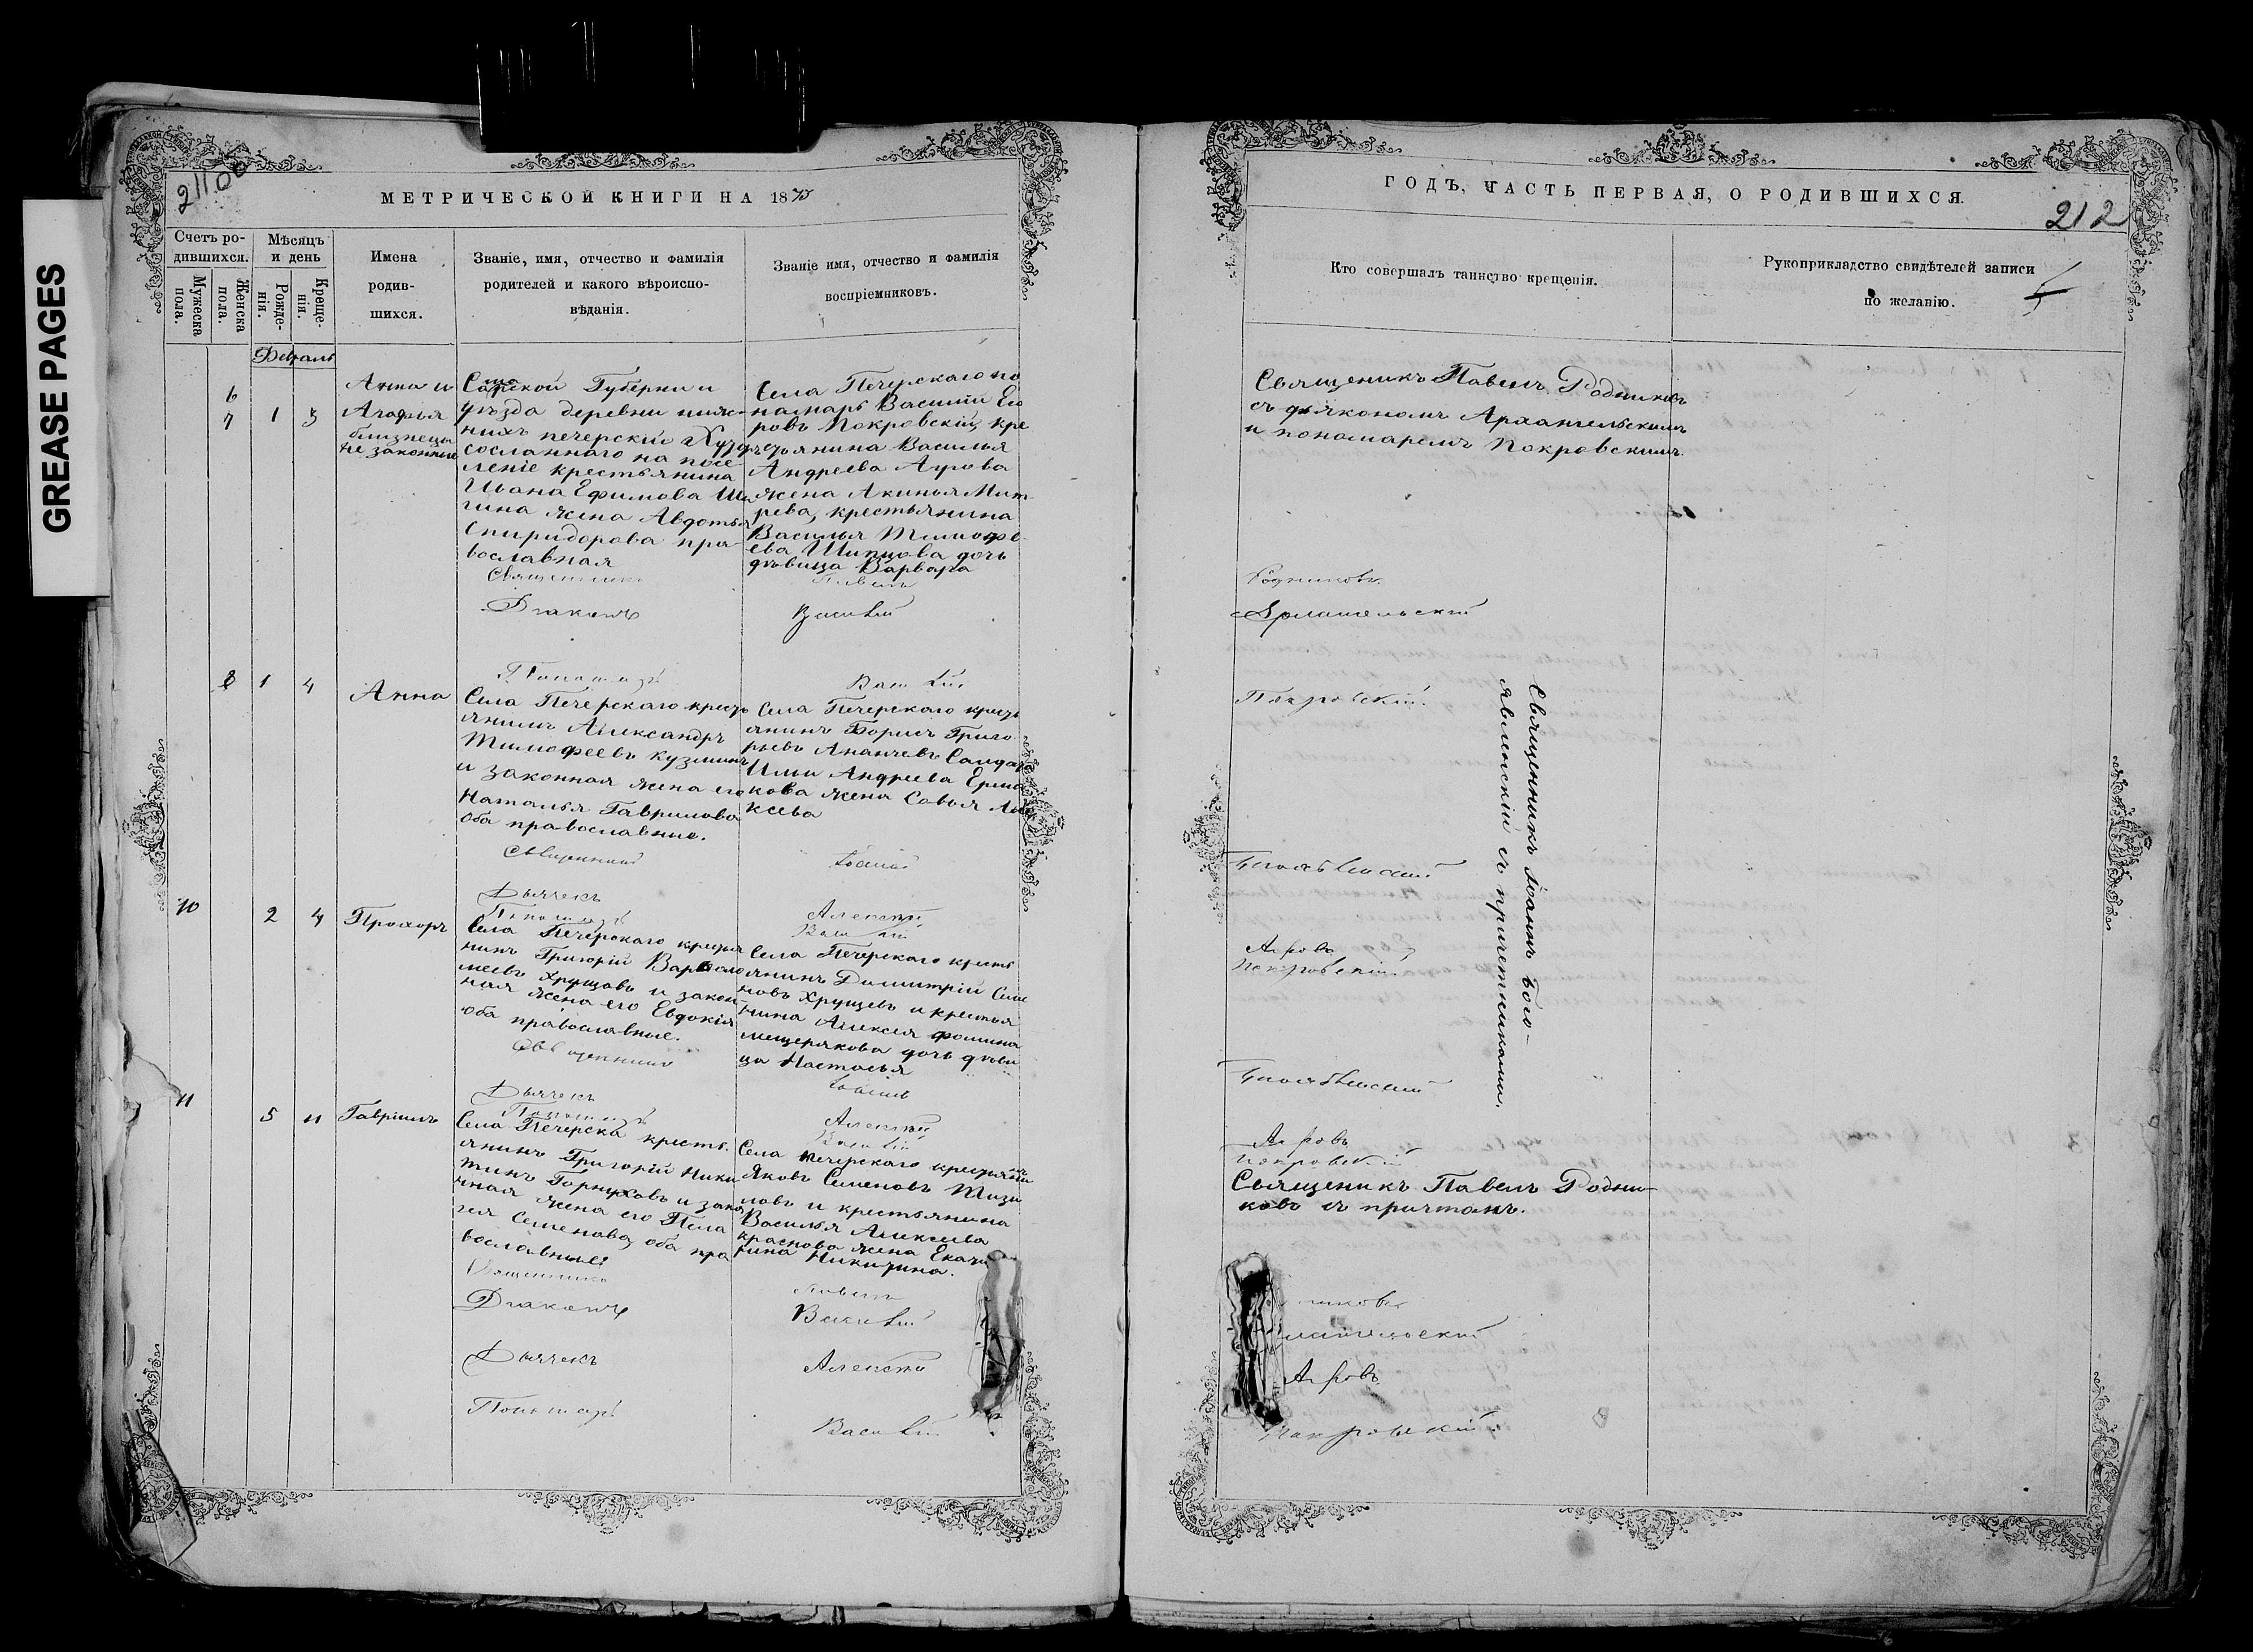 GREASE PAGES
МЕТРИЧЕСКОЙ КНИГИ НА 18
Счетъ ро-
дившихся.
Мужеска пола.
Женска пола.
Мѣсяцъ
и день
Рожде-
нія.
Креще-
нія.
Имена
родив-
шихся.
Званіе, имя, отчество и фамилія
родителей и какого вѣроиспо-
вѣданія.
Званіе имя, отчество и фамилія
воспріемниковъ.
Февраль
6
7
1
3
Анна и
Агафья
близнецы
не законные
Губерніи
уѣзда деревни ниж-
нихъ печерскіе
сосланнаго на посе-
леніе крестьянина
Ивана Ефимова
гина жена Авдотья
православная
Священникъ
Діаконъ
Пономарь
Села Печерскаго по
намарь Василій Его
ровъ Покровскій, кре
стьянина Василья
Андреева Аурова
жена Акинья Мит
рева, крестьянина
Василья Тимофе
ева дочь
дѣвица Варвара
Павелъ
Василій
Василій
8
1
4
Анна
Села Печерскаго кресть
янинъ Александръ
Тимофеевъ Кузминъ
и законная жена его
Наталья Гаврилова
оба православные.
Священникъ
Дьячекъ
Пономарь
Села Печерскаго кресть
янинъ Борисъ Григо
рьевъ Ананчевъ
Ильи Андреева Ерма
кова жена
ксева
Іоаннъ
Алексѣй
Василій
10
2
4
Прохоръ
Села Печерскаго крестья
нинъ Григорій Варѳоло
меевъ Хрущовъ и закон-
ная жена его Евдокія
оба православные.
Священникъ
Дьячекъ
Пономарь
Села Печерскаго кресть
янинъ Димитрій Симе
новъ Хрущевъ и крестья
нина Алексея Фомина
мещерякова дочь дѣви
ца Настасья
Іоаннъ
Алексѣй
Василій
11
5
11
Гавріилъ
Села Печерска кресть.
янинъ Григорій Ники
тинъ Горнуховъ и зако
нная жена его Пела
гея Семенова, оба пра
вославные
Священникъ
Діаконъ
Дьячекъ
Пономарь
Села печерскаго крестьянинъ
Яковъ Семеновъ Тизи
новъ и крестьянина
Василья Алексеева
краснова жена Екате
рина Никитина.
Павелъ
Василій
Алексѣй
Василій
ГОДЪ, ЧАСТЬ ПЕРВАЯ, О РОДИВШИХСЯ.
212
Кто совершалъ таинство крещенія.
Рукоприкладство свидѣтелей записи
по желанію.
Священикъ Павелъ Родниковъ
съ дьякономъ Архангельскимъ
и пономаремъ Покровскимъ.
Родниковъ
Архангельскій
Покровскій
Священникъ Іоаннъ Бого-
явленскій съ причетниками.
Богоявленскій
Покровскій
Богоявленскій
Покровскій
Священикъ Павелъ Родни-
ковъ съ причтомъ.
Покровскій